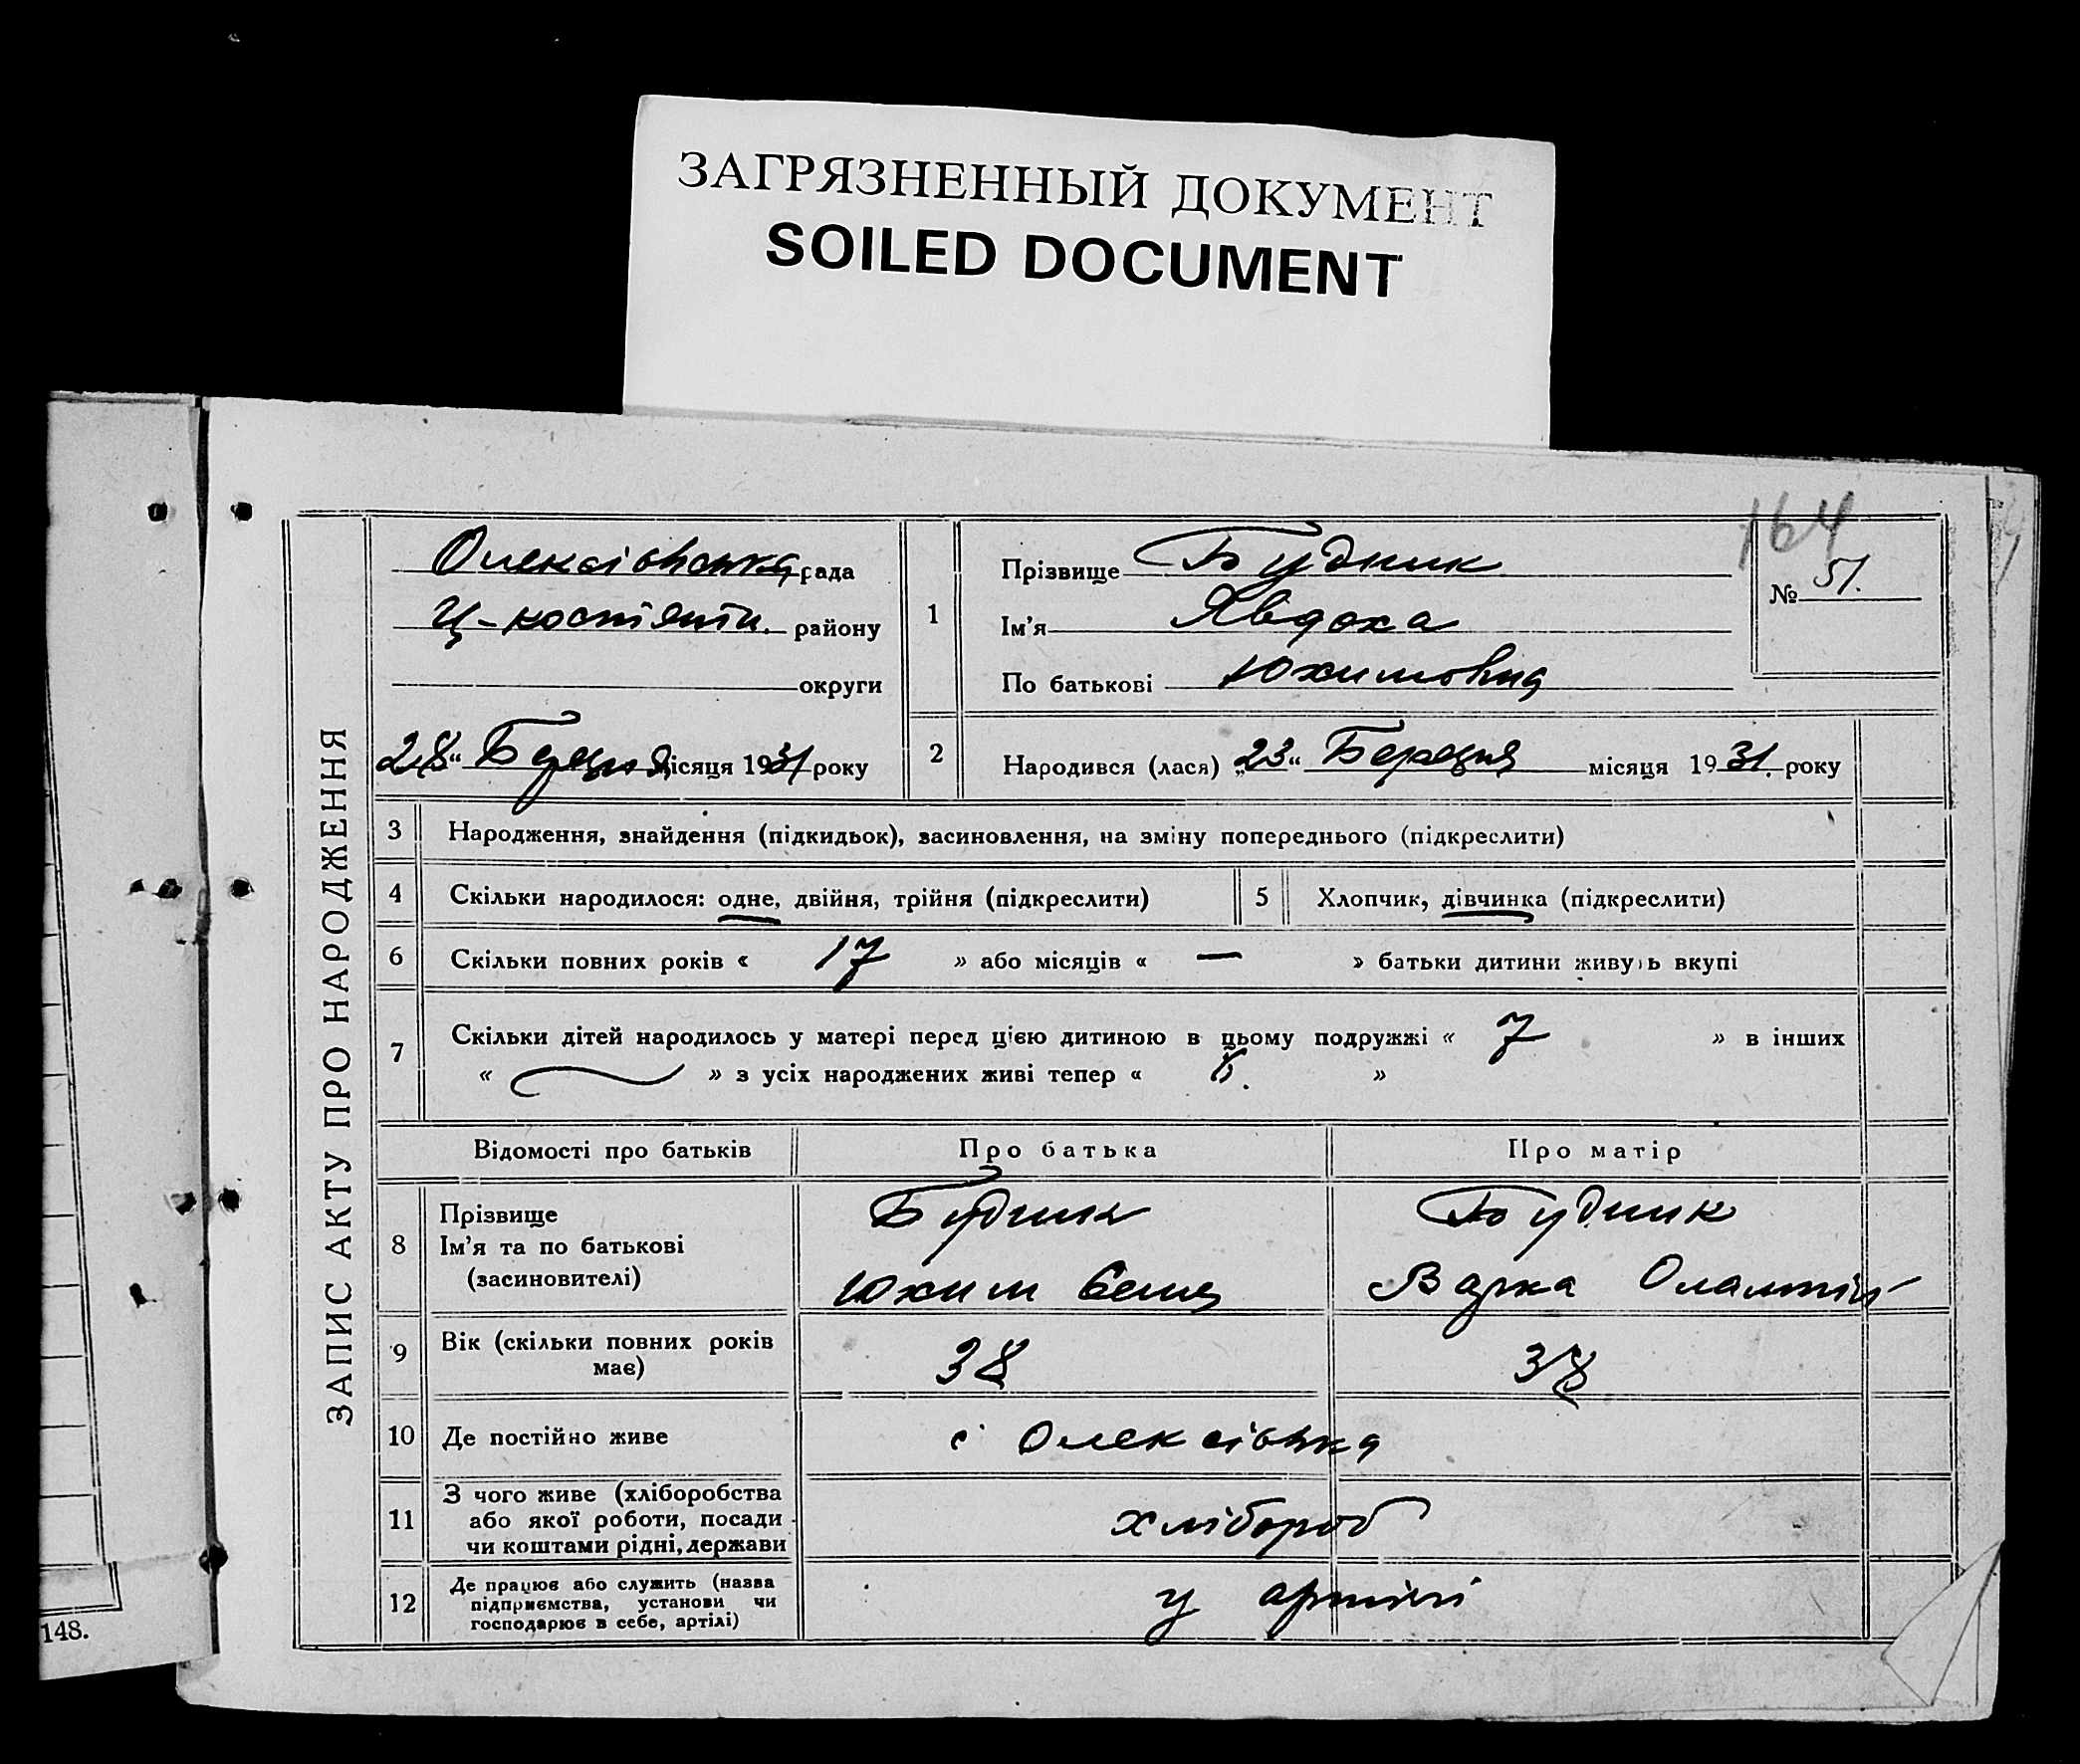 ЗАГРЯЗНЕННЫЙ ДОКУМЕНТ
SOILED DOCUMENT
164
ЗАПИС АКТУ ПРО НАРОДЖЕННЯ
Олексіївська рада
району
округи
28 Березня місяця 1931 року
1
Прізвище Будник
Ім’я Явдоха
По батькові Юхимовна
№ 51.
2 Народився (лася) „23“ Березня місяця 1931. року
3 Народження, знайдення (підкидьок), засиновлення, на зміну попереднього (підкреслити)
4 Скільки народилося: одне, двійня, трійня (підкреслити)
5 Хлопчик, дівчинка (підкреслити)
6 Скільки повних років « 17 » або місяців « — » батьки дитини живуть вкупі
7 Скільки дітей народилось у матері перед цією дитиною в цьому подружжі « 7 » в інших
« — » з усіх народжених живі тепер « »
Відомості про батьків Про батька Про матір
8 Прізвище Будник Будник
Ім’я та по батькові
(засиновителі) Юхим Варка
9 Вік (скільки повних років має) 38 38
10 Де постійно живе с Олексіівка
11 З чого живе (хліборобства
або якої роботи, посади
чи коштами рідні, держави хлібороб
12 Де працює або служить (назва
підприємства, установи чи
господарює в себе, артілі) у артілі
148.